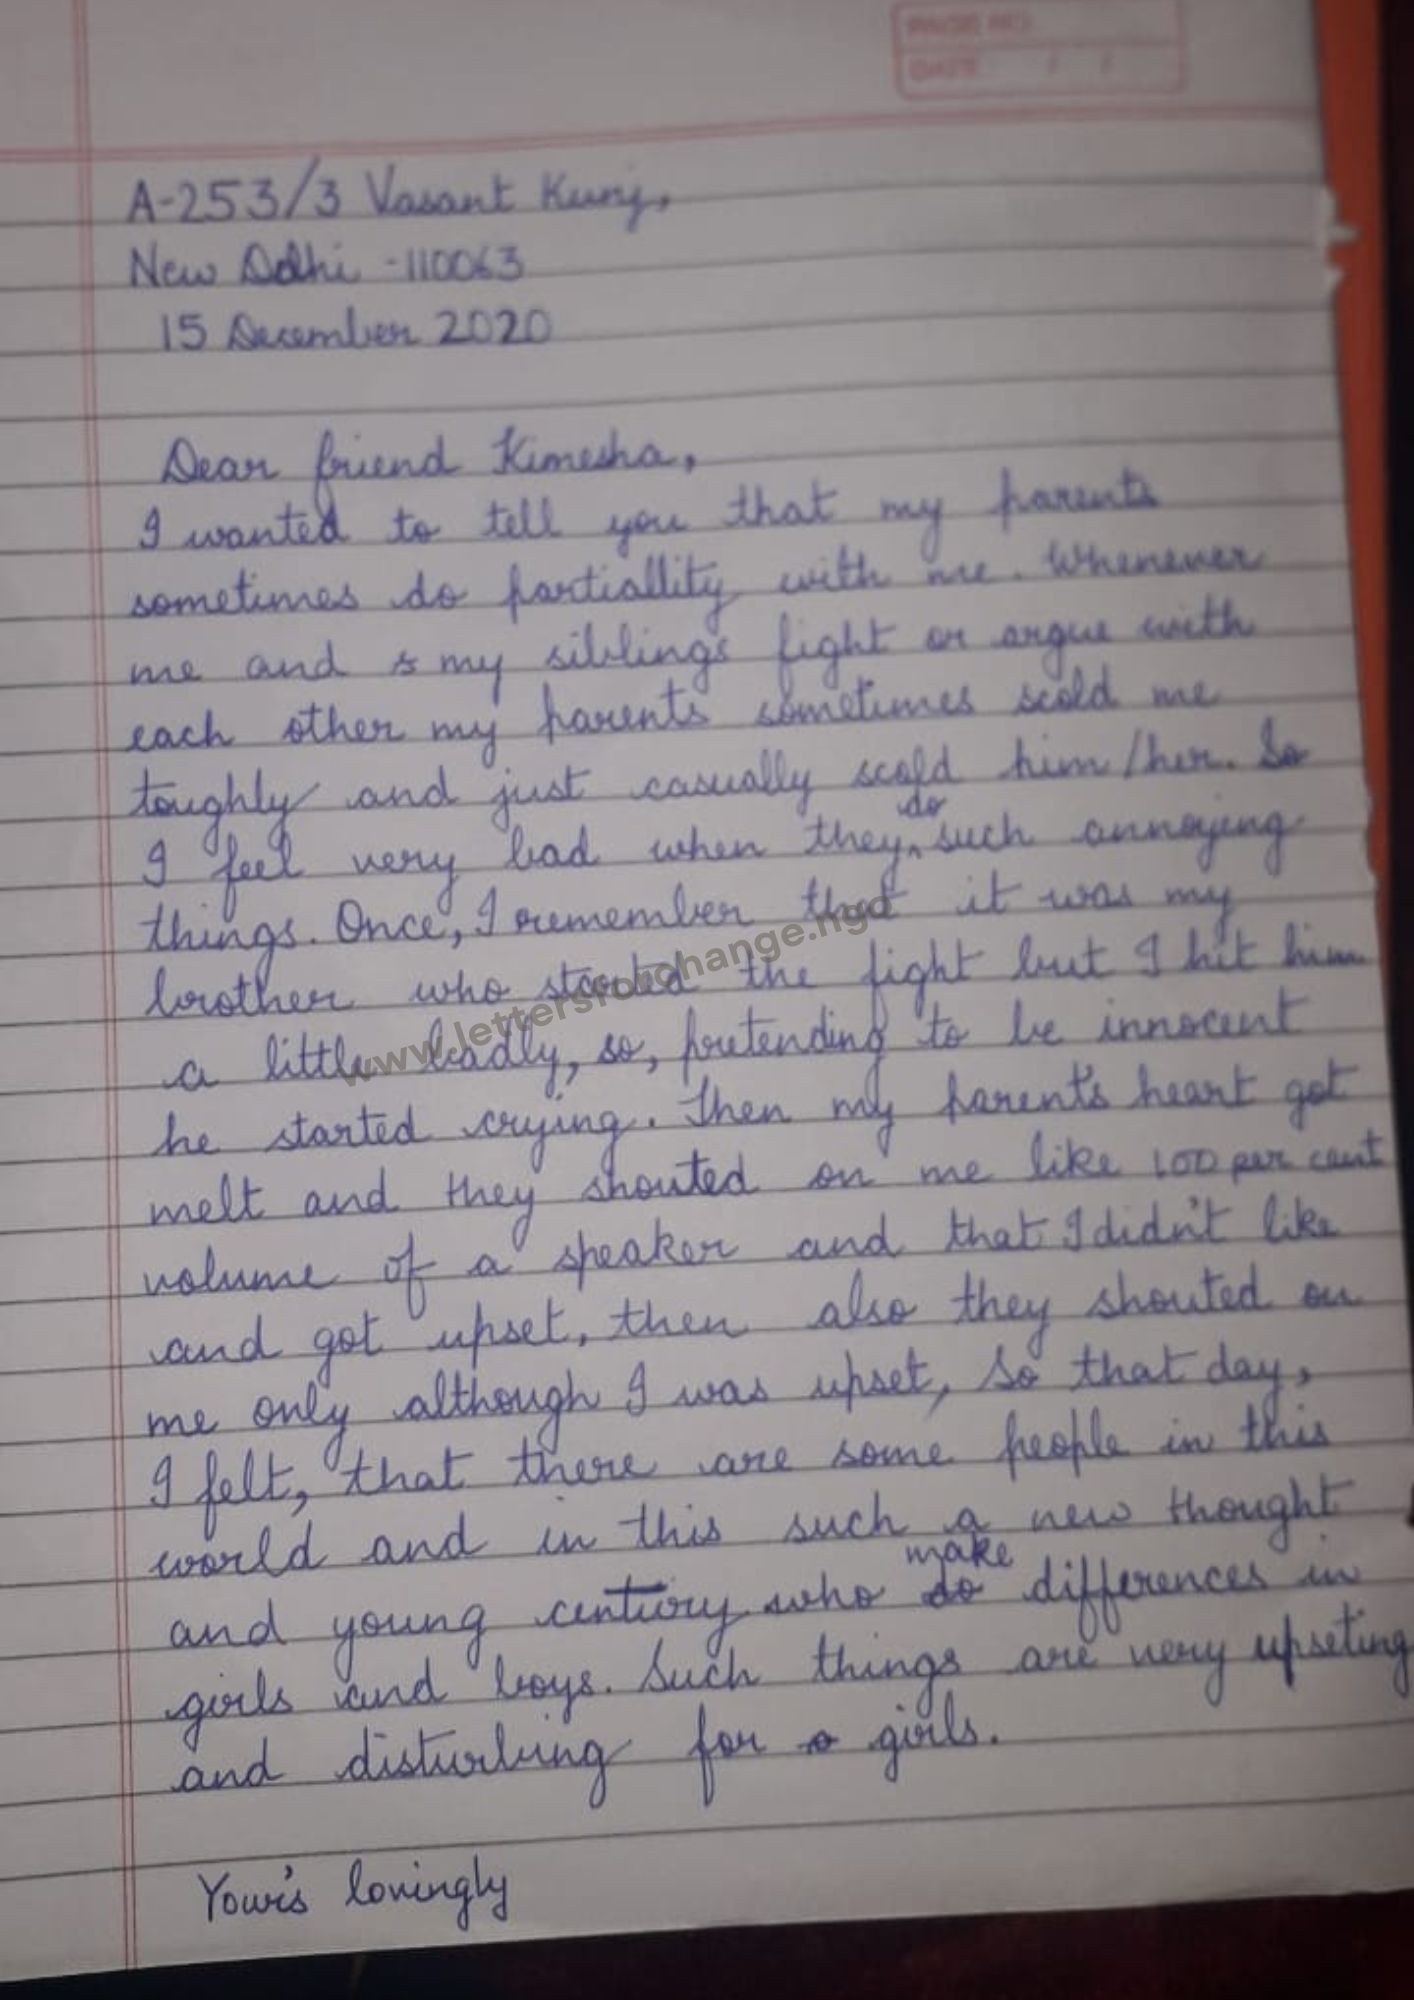 PAGE NO.
DATE / /
A-253/3 Vasant Kunj,
New Delhi -110063
15 December 2020
Dear friend Kimesha,
I wanted to tell you that my parents
sometimes do partiallity with me. Whenever
me and s my siblings fight or argue with
each other my parents sometimes scold me
toughly and just casually scold him/her. So
I feel very bad when they do such annoying
things. Once, I remember that it was my
brother who started the fight but I hit him
a little badly, so, pretending to be innocent
he started crying. Then my parent's heart got
melt and they shouted on me like 100 per cent
volume of a speaker and that I didn't like
and got upset, then also they shouted on
me only although I was upset, so that day,
I felt, that there are some people in this
world and in this such a new thought
and young century who do make differences in
girls and boys. Such things are very upseting
and disturbing for girls.
Your's lovingly
www.lettersforchange.ngo